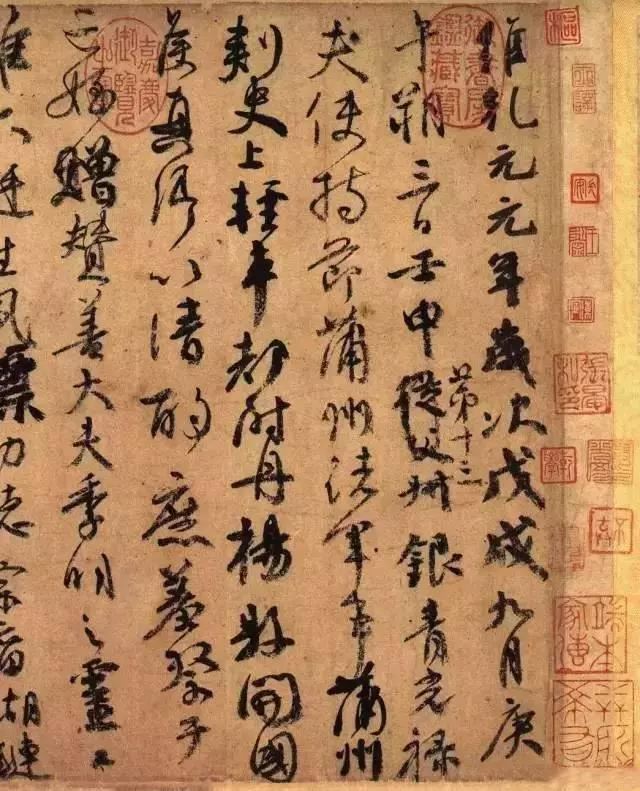 維乾元元年歲次戊戌九月庚
午朔三日壬申第十三從父叔銀青光祿
夫使持節蒲州諸軍事蒲州
刺史上輕車都尉丹楊縣開國
侯真卿以清酌庶羞祭于
亡姪贈贊善大夫季明之靈曰
惟爾挺生夙標幼德宗廟瑚璉
嘉慶御覽之寶